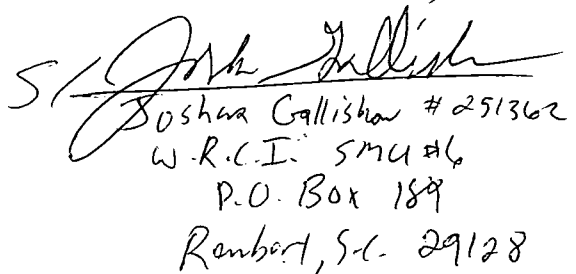 S/ Josh Gallishaw
Joshua Gallishaw # 251362
W.R.C.I. SMU #6
P.O. Box 189
Rembert, S.C. 29128